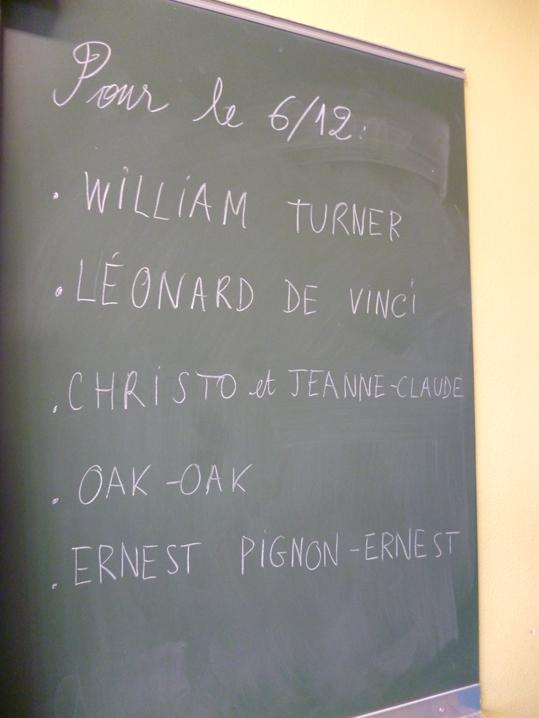 Pour le 6/12:
. WiLLiAM TURNER
. LÉONARD DE ViNCi
. CHRiSTO et JEANNE-CLAUDE
. OAK-OAK
. ERNEST PiGNON-ERNEST